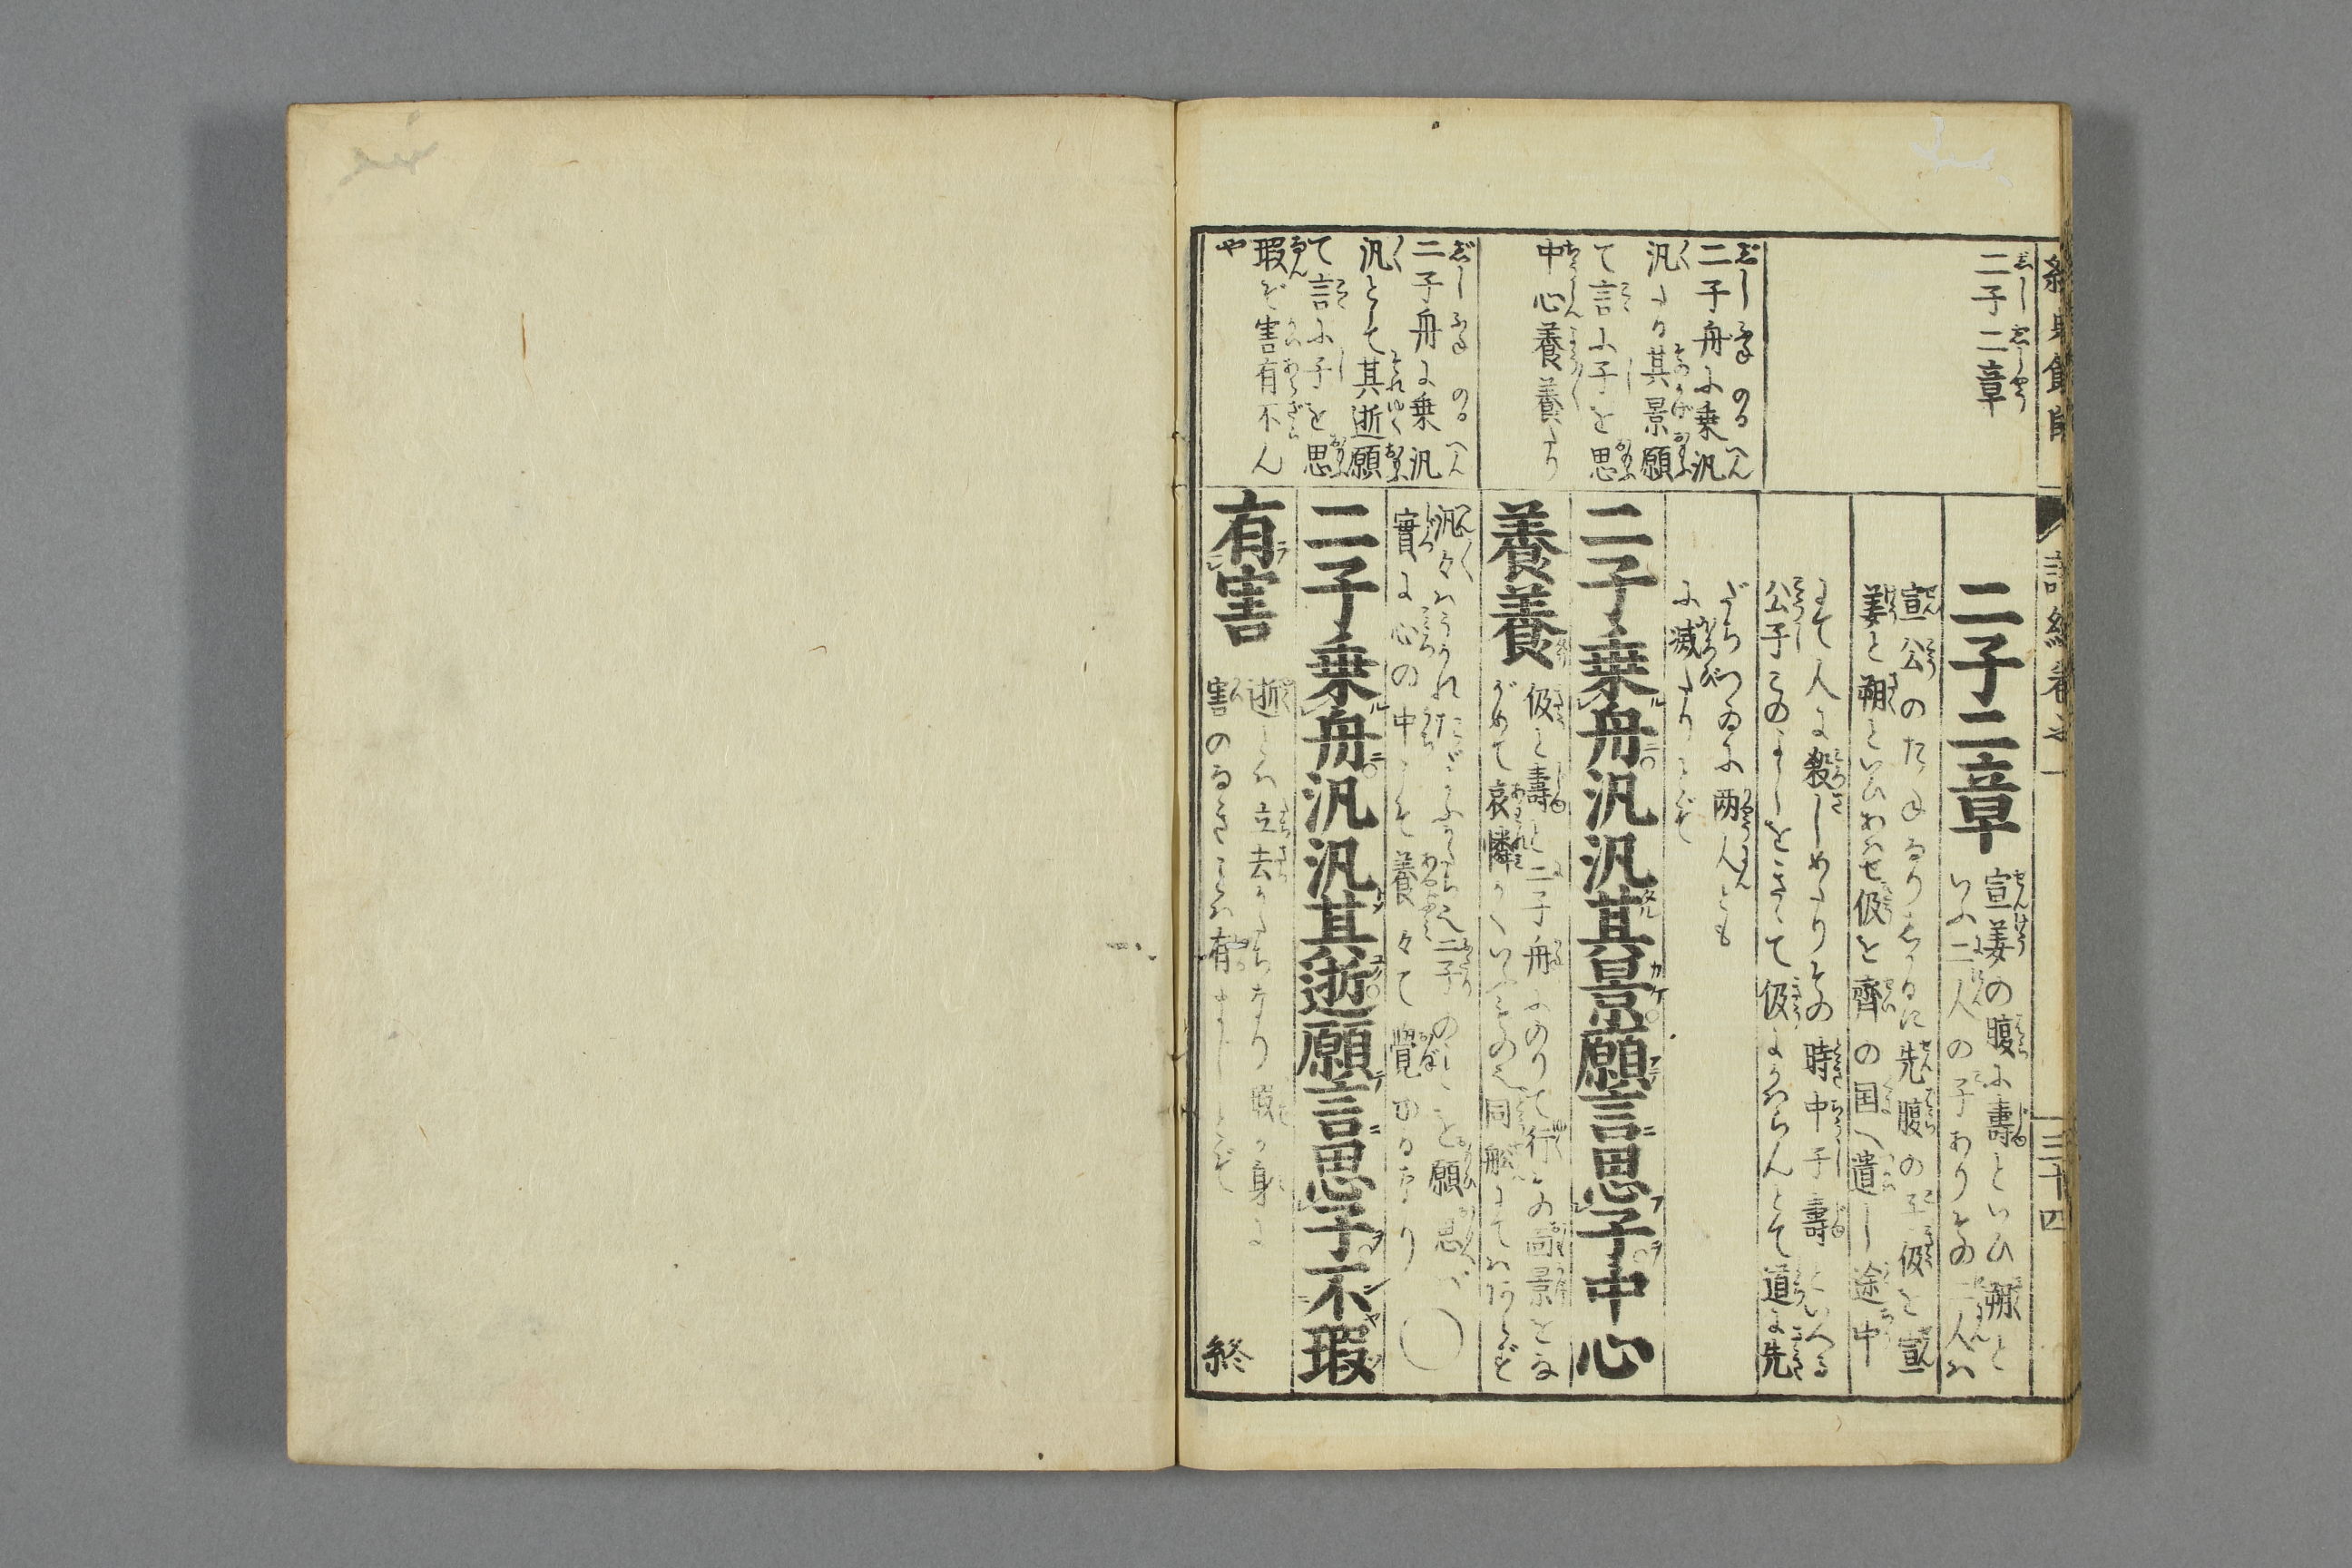 二子二章
二子舟に乗汎
く汎たる其景願
て言に子を思
中心養養たり
二子舟に乗汎
く汎として其逝願
て言に子を思
瑕ぞ害有不ん
や
二子二章
宣姜の腹に壽といひ朔と
いふ二人の子ありその二人は
宣公の
先腹の子伋と宣
姜と朔といひあはせ伋を齊の国へ遣し途中
にて人に殺しめたりその時中子壽といへる
公子このよしをきゝて伋にかはらんとて道に先
だちつゐに两人とも
に滅たりとぞ
二子乗舟汎汎其景願言思子中心
養養
伋と壽と二子舟にのりて行その
景をな
がめて哀憐
同船にては
汎々は
二子のことを願思へば
實に心の中にて養々て覺ゆるなり
二子乗舟汎汎其逝願言思子不瑕
有害
逝とは立去かたちなり瑕か身に
害のなきことは有まじとぞ
終
詩経巻之一
三十四